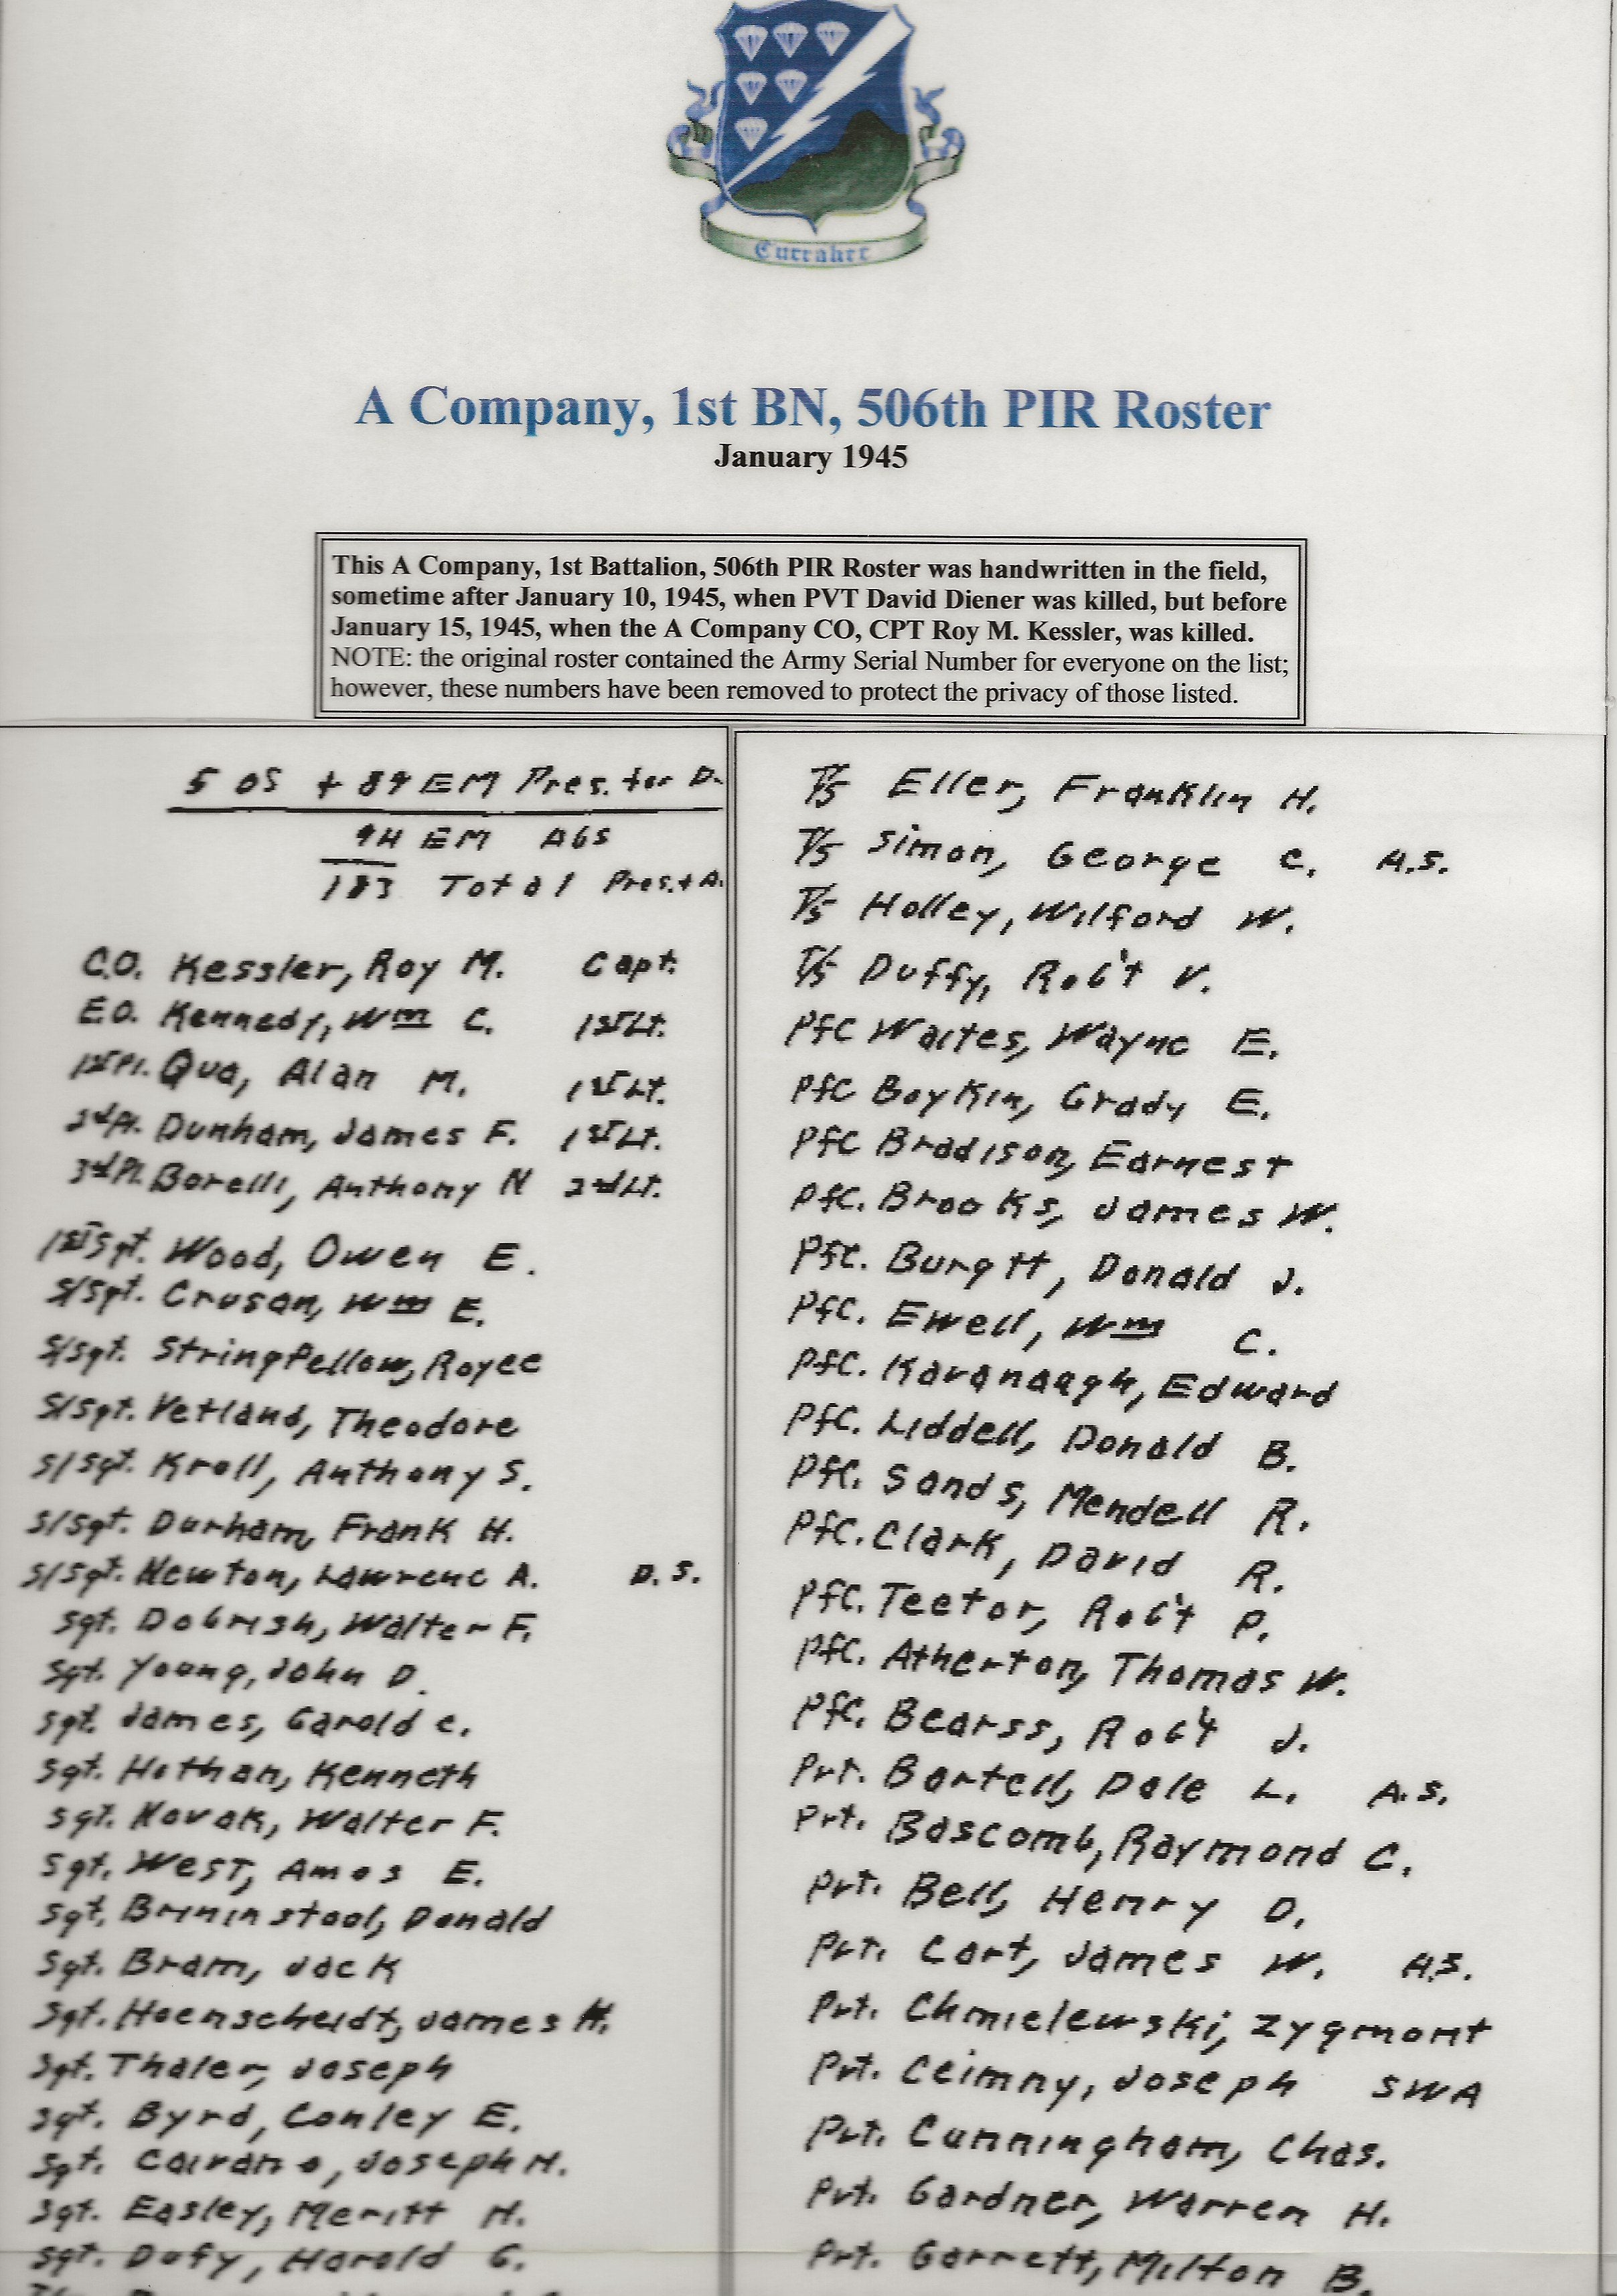 Currahee
A Company, 1st BN, 506th PIR Roster
January 1945
This A Company, 1st Battalion, 506th PIR Roster was handwritten in the field,
sometime after January 10, 1945, when PVT David Diener was killed, but before
January 15, 1945, when the A Company CO, CPT Roy M. Kessler, was killed.
NOTE: the original roster contained the Army Serial Number for everyone on the list;
however, these numbers have been removed to protect the privacy of those listed.
5 OS + 89 EM Pres. for D.
94 EM Abs
183 Total Pres. + A.
C.O. Kessler, Roy M. Capt.
E.O. Kennedy, Wm C. 1st Lt.
1st Pl. Qua, Alan M. 1st Lt.
2d Pl. Dunham, James F. 1st Lt.
3rd Pl. Borelli, Anthony N 2nd Lt.
1st Sgt. Wood, Owen E.
S/Sgt. Crusan, Wm E.
S/Sgt. Stringfellow, Royce
S/Sgt. Vetland, Theodore
S/Sgt. Kroll, Anthony S.
S/Sgt. Durham, Frank H.
S/Sgt. Newton, Lawrenc A. D.S.
Sgt. Dobrish, Walter F.
Sgt. Young, John D.
Sgt. James, Garold C.
Sgt. Hothan, Kenneth
Sgt. Novak, Walter F.
Sgt. West, Amos E.
Sgt. Brininstool, Donald
Sgt. Bram, Jack
Sgt. Hoenscheidt, James H.
Sgt. Thaler, Joseph
Sgt. Byrd, Conley E.
Sgt. Cairano, Joseph H.
Sgt. Easley, Meritt H.
Sgt. Dufy, Harold G.
T/5 Eller, Franklin H.
T/5 Simon, George C. A.S.
T/5 Holley, Wilford W.
T/5 Duffy, Rob't V.
Pfc Waites, Wayne E.
Pfc Boykin, Grady E.
Pfc Bradison, Earnest
Pfc. Brooks, James W.
Pfc. Burgtt, Donald J.
Pfc. Ewell, Wm C.
Pfc. Kavanaagh, Edward
Pfc. Liddell, Donald B.
Pfc. Sands, Mendell R.
Pfc. Clark, David R.
Pfc. Teetor, Rob't P.
Pfc. Atherton, Thomas W.
Pfc. Bearss, Rob't J.
Pvt. Bartell, Dale L. A.S.
Pvt. Bascomb, Raymond C.
Pvt. Bell, Henry D.
Pvt. Cart, James W. A.S.
Pvt. Chmielewski, Zygmont
Pvt. Ceimny, Joseph SWA
Pvt. Cunningham, Chas.
Pvt. Gardner, Warren H.
Pvt. Garrett, Milton B.